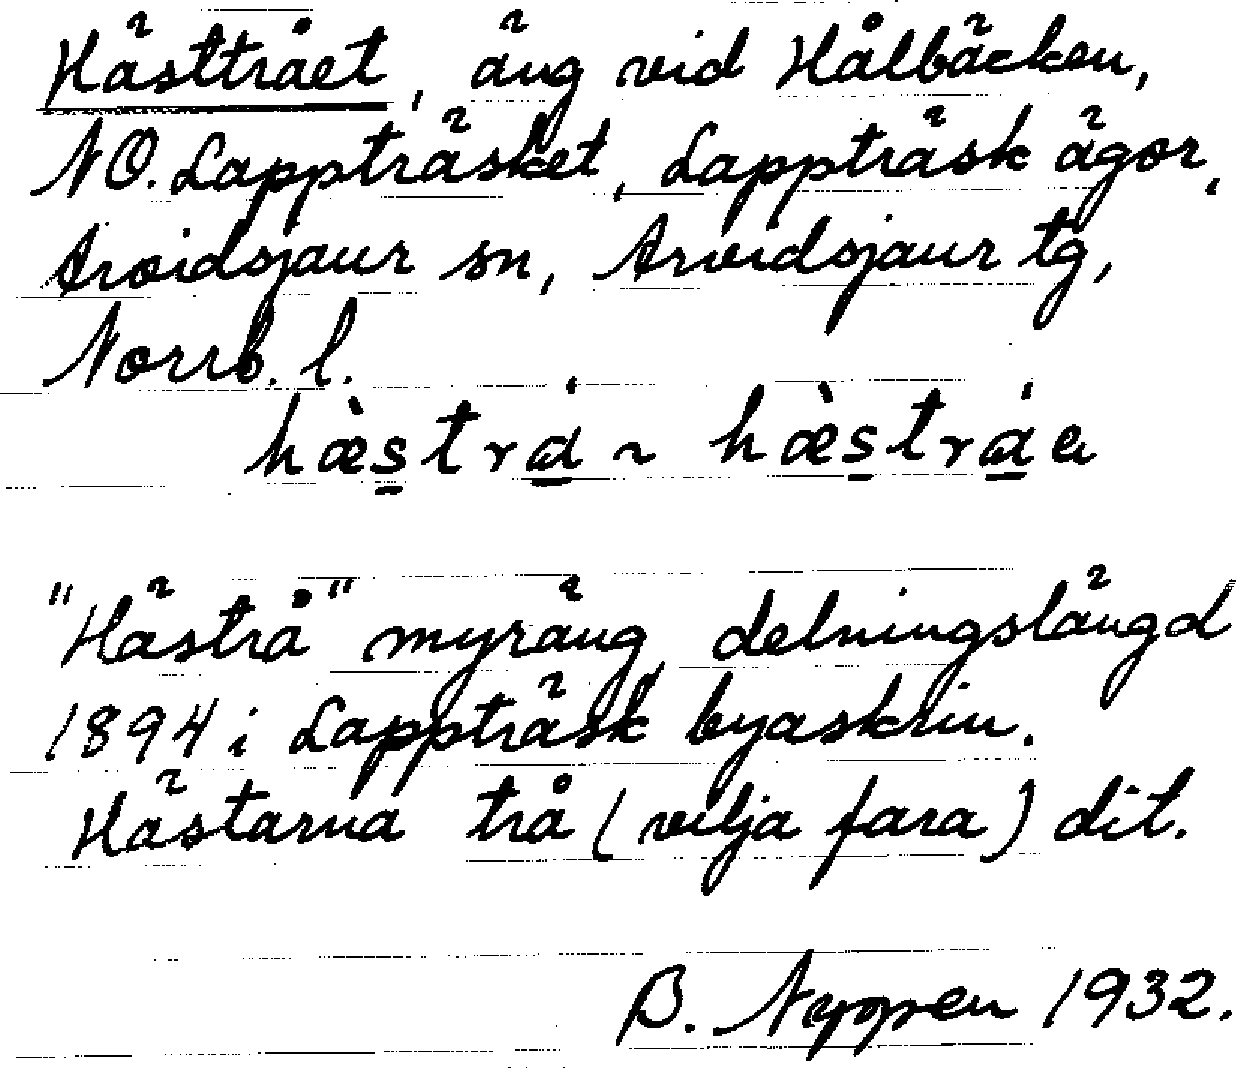 Hästtrået, äng vid Hålbäcken,
NO. Lappträsket, Lappträsk ägor,
Arvidsjaur sn, Arvidsjaur tg,
Norrb. l.
hæ̀strá ~ hæ̀stráe
"Hästrå" myräng, delningslängd
1894 i Lappträsk byaskrin.
Hästarna trå (vilja fara) dit.
B. Nyppen 1932.